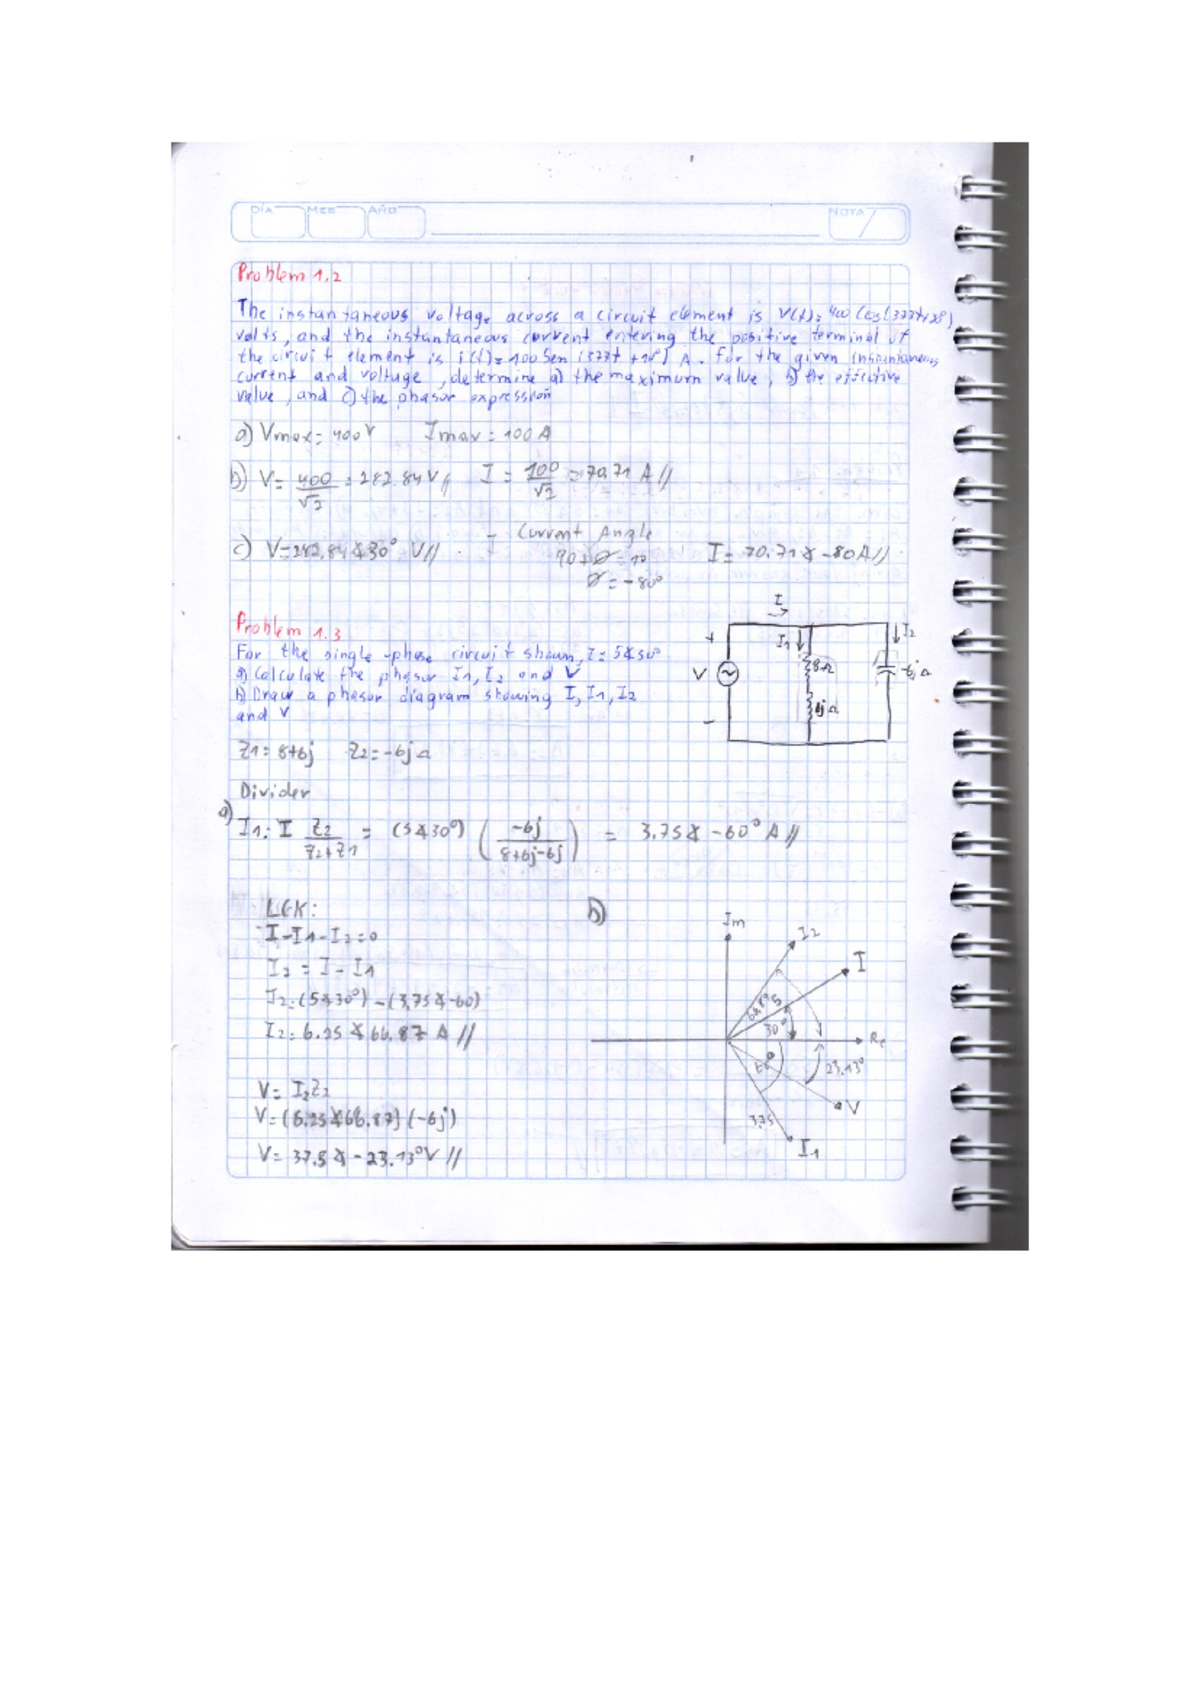 DÍA MES AÑO NOTA
Problem 1.2
The instantaneous voltage across a circuit element is V(t)= 400 Cos(377t+
volts, and the instantaneous current entering the positive terminal of
the circuit element is i(t)= 100 Sen (377t +10°) A. for the given instantaneous
current and voltage, determine a) the maximum value, b) the effective
value, and c) the phasor expression
a) Vmax= 400V Imax= 100 A
b) V= 400/√2 = 282.84V // I = 100/√2 = 70.71 A//
c) V=282,84∡30° V// I Current Angle
90+Ø=10 I= 70.71∡-80A//
Ø=-80°
Problem 1.3
For the single-phase circuit shown, I= 5∡30°
a) Calculate the phasor I1, I2 and V
b) Draw a phasor diagram showing I, I1, I2
and V
I
I1 I2
+ V -
8Ω
6jΩ
-6jΩ
Z1= 8+6j Z2= -6jΩ
Divider
a) I1= I Z2/(Z2+Z1) = (5∡30°) (-6j/(8+6j-6j)) = 3.75∡-60° A//
LCK:
I-I1-I2=0
I2 = I-I1
I2=(5∡30°)-(3,75∡-60)
I2= 6.25∡66.87 A //
V= I2Z2
V=(6.25∡66.87)(-6j)
V= 37.5∡-23.13°V //
b)
Im
I2
I
5
30°
Re
60°
23.13°
V
3.75
I1